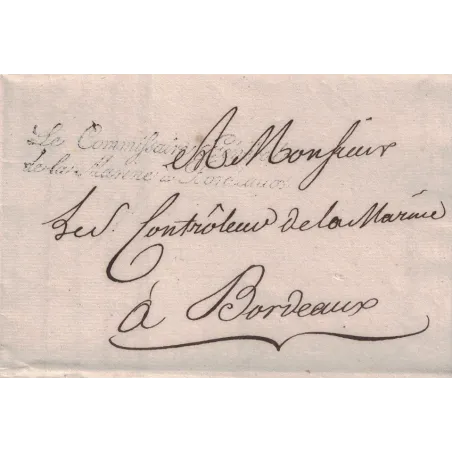 Le Commissaire
de la Marine à Bordeaux
A Monsieur
Contrôleur de la Marine
à Bordeaux